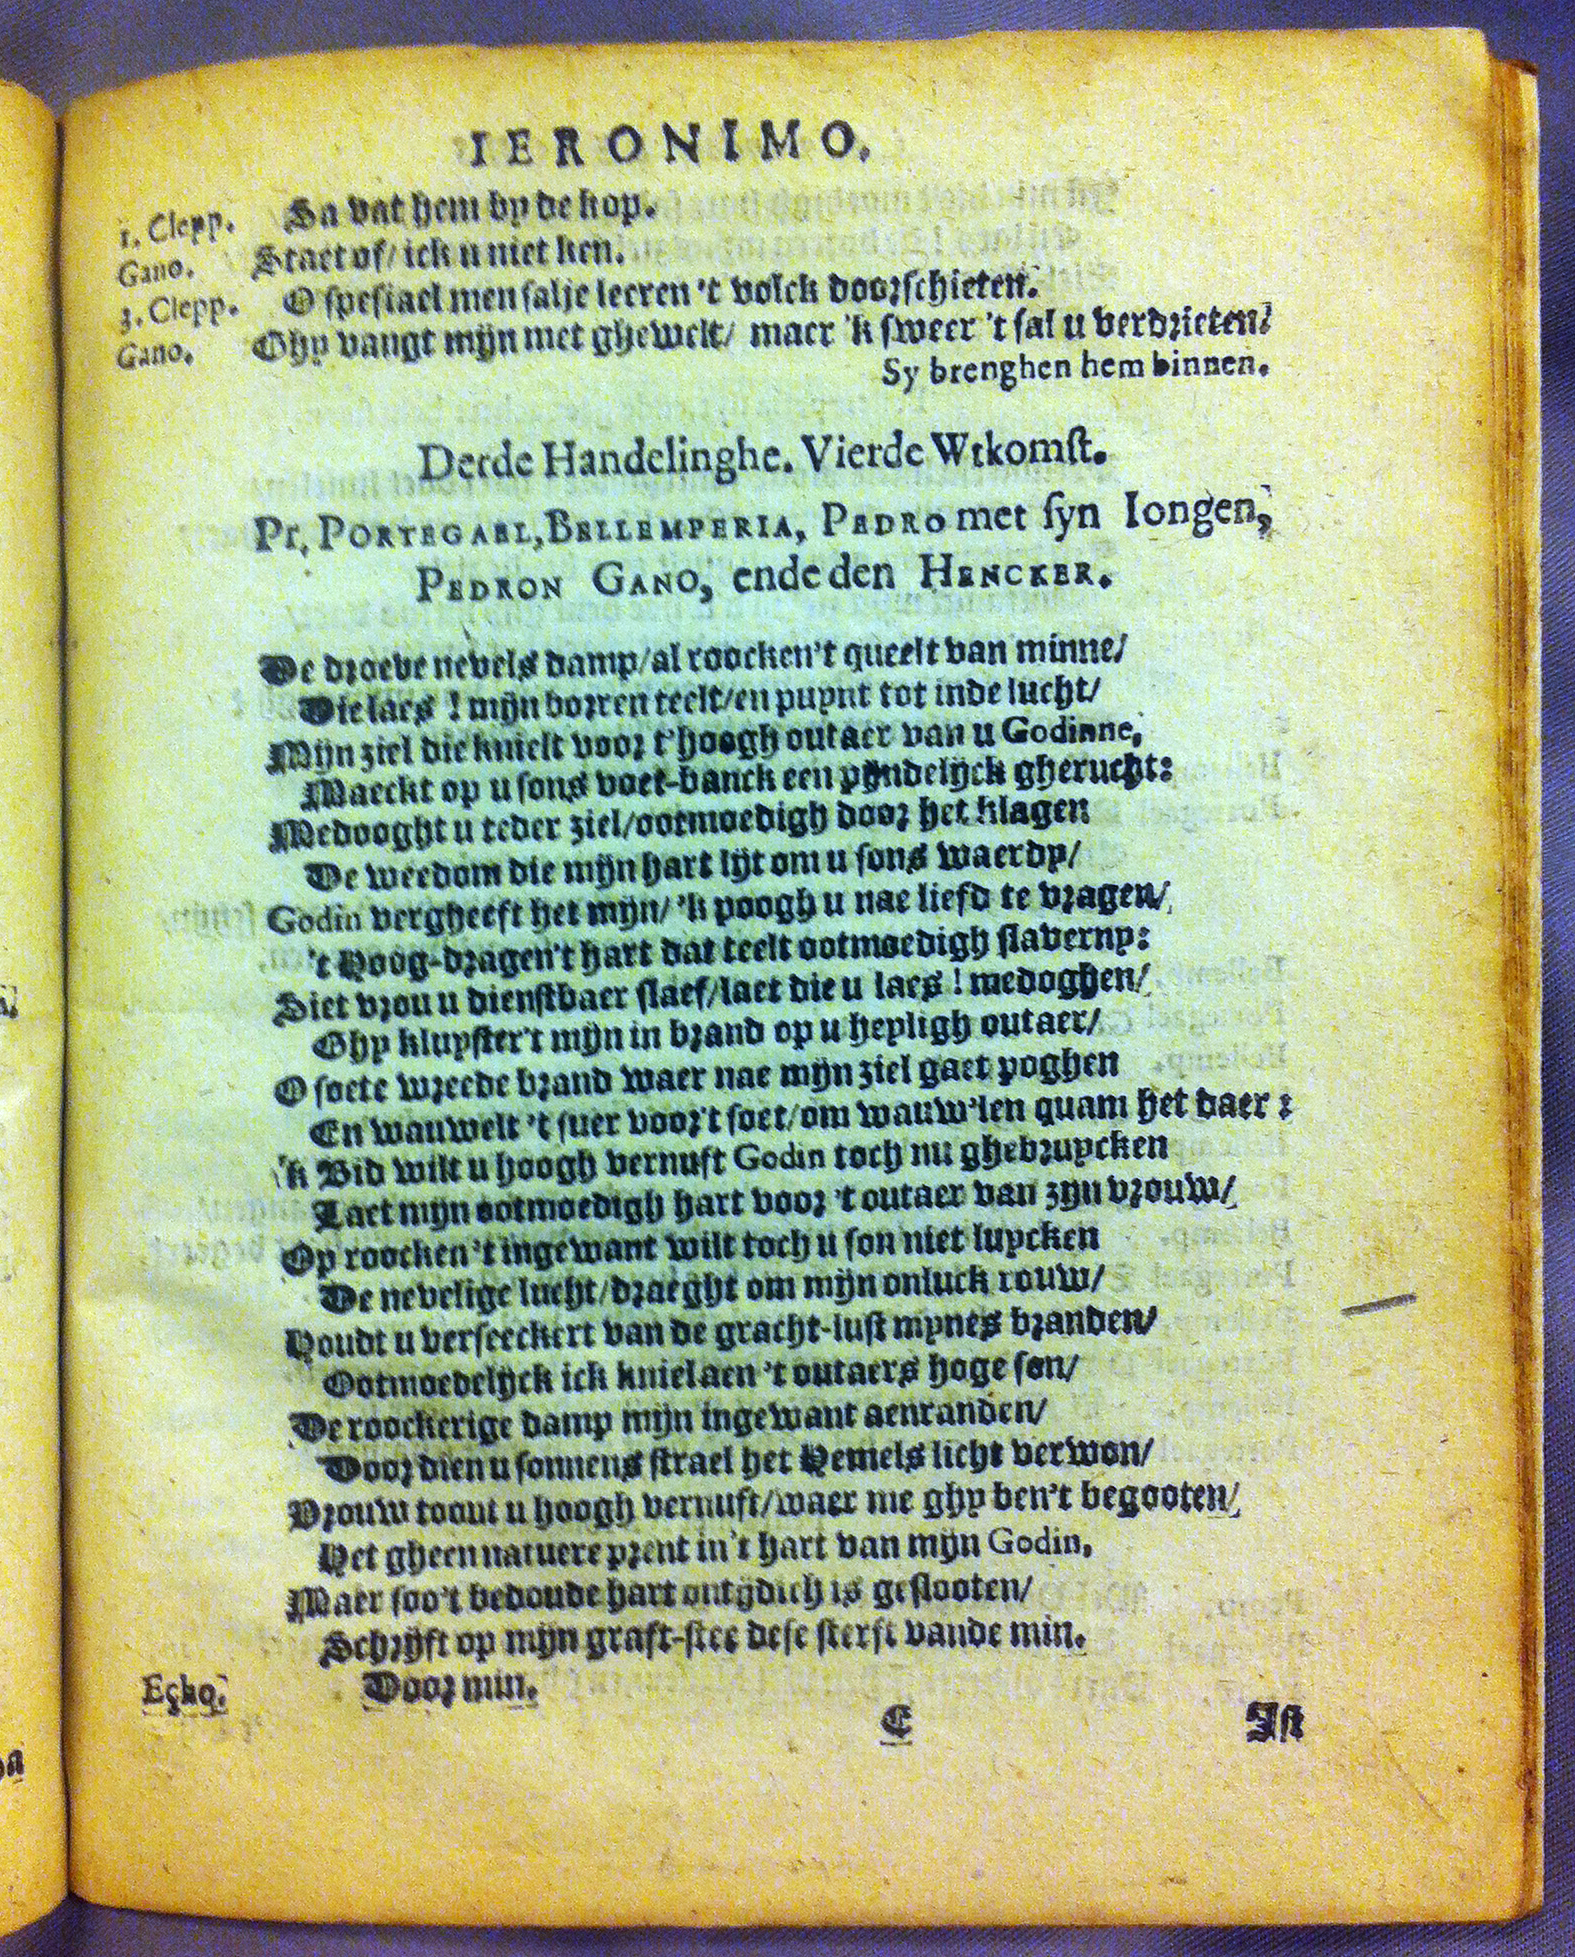 IERONIMO.
1. Clepp. Sa vat hem by de kop.
Gano. Staet of/ ick u niet ken.
3. Clepp. O spesiael men salje leeren 't volck doorschieten.
Gano. Ghy vangt mijn met ghewelt/ maer 'k sweer 't sal u verdrieten.
Sy brenghen hem binnen.
Derde Handelinghe. Vierde Wtkomst.
Pr. PORTEGAEL, BELLEMPERIA, PEDRO met syn Iongen,
PEDRON GANO, ende den HENCKER.
De droeve nevels damp/al roocken't queelt van minne/
Die laes ! mijn dorren teelt/en puynt tot inde lucht/
Mijn ziel die knielt voor t'hoogh outaer van u Godinne,
Maeckt op u sons voet-banck een pijndelijck gherucht:
Medooght u teder ziel/ootmoedigh door het klagen
De weedom die mijn hart lijt om u sons waerdy/
Godin vergheeft het mijn/ 'k poogh u nae liefd te vragen/
't Hoog-dragen't hart dat teelt ootmoedigh slaverny:
Siet vrou u dienstbaer slaef/laet die u laes ! medoghen/
Ghy kluyster't mijn in brand op u heyligh outaer/
O soete wreede brand waer nae mijn ziel gaet poghen
En wauwelt 't suer voor't soet/om wauw'len quam het daer :
'k Bid wilt u hoogh vernuft Godin toch nu ghebruycken
Laet mijn ootmoedigh hart voor 't outaer van zijn vrouw/
Op roocken't ingewant wilt toch u son niet luycken
De nevelige lucht/draeght om mijn onluck rouw/
Houdt u verseeckert van de gracht-lust mynes branden/
Ootmoedelijck ick kniel aen 't outaers hoge son/
De roockerige damp mijn ingewant aenranden/
Door dien u sonnens strael het Hemels licht verwon/
Vrouw toont u hoogh vernuft/waer me ghy ben't begooten/
Het gheen natuere prent in't hart van mijn Godin,
Maer soo't bedoude hart ontijdich is geslooten/
Schrijft op mijn graft-stee dese sterft vande min.
Echo. Door min.
C Ist